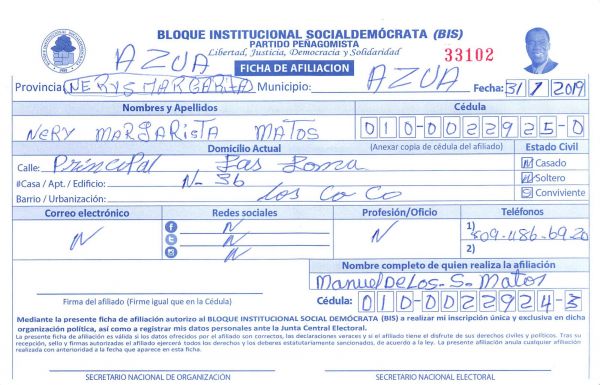 BLOQUE INSTITUCIONAL SOCIALDEMÓCRATA (BIS)
PARTIDO PEÑAGOMISTA
Libertad, Justicia, Democracia y Solidaridad
33102
FICHA DE AFILIACION
AZUA
AZUA
Provincia: NERYS MARGARIA Municipio: Fecha: 31/7/2019
Nombres y Apellidos
Cédula
NERY MARGARISTA MATOS
010-0022925-0
Domicilio Actual (Anexar copia de cédula del afiliado)
Estado Civil
Calle: Principal Las Loma
N Casado
#Casa / Apt. / Edificio: N-36
N Soltero
Barrio / Urbanización: Los CoCo
S Conviviente
Correo electrónico
Redes sociales
Profesión/Oficio
Teléfonos
N
N
N
N
N
1) 809-486-6920
2)
Nombre completo de quien realiza la afiliación
Manuel De Los. S. Matos
Firma del afiliado (Firme igual que en la Cédula)
Cédula: 010-0022924-3
Mediante la presente ficha de afiliación autorizo al BLOQUE INSTITUCIONAL SOCIAL DEMÓCRATA (BIS) a realizar mi inscripción única y exclusiva en dicha
organización política, así como a registrar mis datos personales ante la Junta Central Electoral.
La presente ficha de afiliación es válida si los datos ofrecidos por el afiliado son correctos, las declaraciones veraces y si el afiliado tiene el disfrute de sus derechos civiles y políticos. Tras su
recepción, sello y firmas autorizadas el afiliado ejercerá todos los derechos y los deberes estatutariamente sancionados, de acuerdo a la ley. La presente afiliación anula cualquier afiliación
realizada con anterioridad a la fecha que aparece en esta ficha.
SECRETARIO NACIONAL DE ORGANIZACIÓN
SECRETARIO NACIONAL ELECTORAL